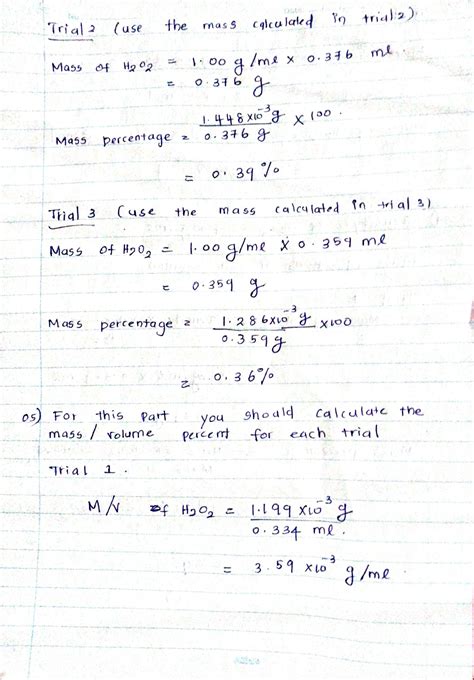 Trial 2 (use the mass calculated in trial 2).
Mass of H2O2 = 1.00 g/ml x 0.376 ml.
= 0.376 g
Mass percentage = 1.448x10^-3 g / 0.376 g x 100.
= 0.39 %
Trial 3 (use the mass calculated in trial 3)
Mass of H2O2 = 1.00 g/ml x 0.359 ml
= 0.359 g
Mass percentage = 1.286x10^-3 g / 0.359 g x100
= 0.36%
05) For this part you should calculate the
mass / volume percent for each trial
Trial 1.
M/V of H2O2 = 1.199 x10^-3 g / 0.334 ml.
= 3.59 x10^-3 g/ml.